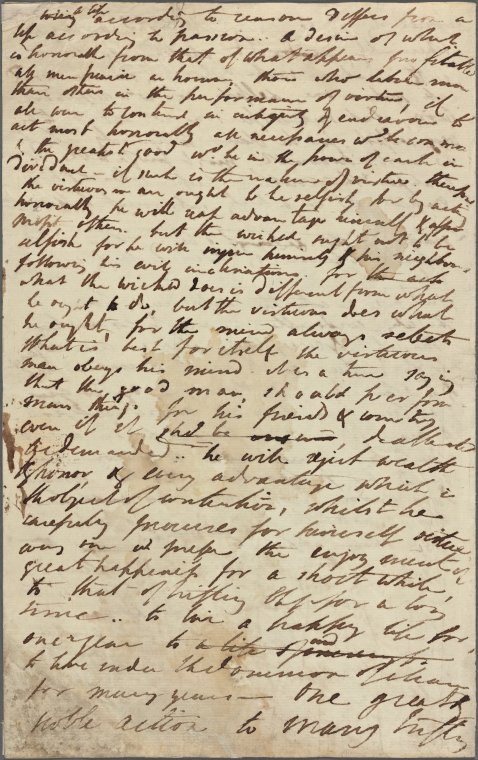 living according to reason differs from a
life according to passion. a desire of what
is honorable from that of what appears profitable
all men praise & honour those who labor more
than others in the performance of virtue, if
all were to contend in endeavour to
act most honorably all necessaries wd be common
& the greatest good wd be in the power of each in
dividual – if such is the nature of virtue therefore
the virtuous man ought to be selfish for by acting
honorably he will reap advantage himself & afford
most others. but the wicked ought not to be
selfish for he will injure himself & his neighbour
following his evil inclinations. for the acts
what the wicked does is different from what
he ought to do, but the virtuous does what
he ought, for the mind always selects
what is best for itself the virtuous
man obeys his mind. it is a true saying
that the good man, should perform
many things for his friends & country
even if it shd be death
is demanded. he will reject wealth
& honor, & every advantage which is
the object of contention, whilst he
carefully procures for himself virtue
any one wd prefer the enjoyment of
great happiness for a short while,
to that of trifling for a long
time.. to live a happy life for
one year to a life of and
to have under the dominion of
for many years – one great &
noble action to many trifling